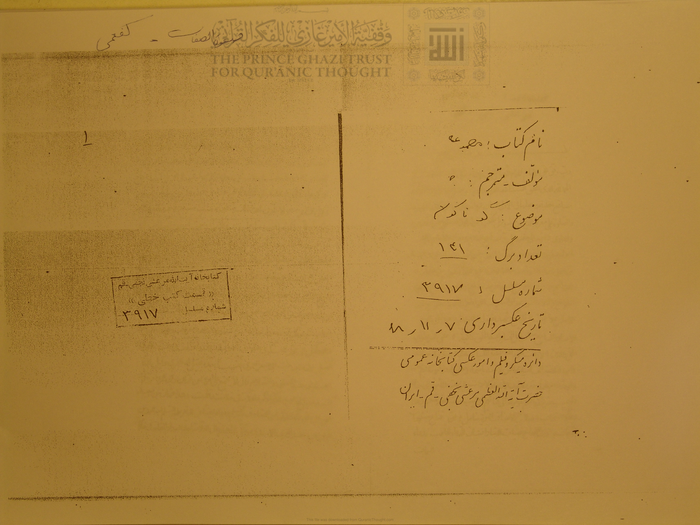 کفعمی -
وقفية الأمير غازي للفكر القرآني
THE PRINCE GHAZI TRUST
FOR QUR'ANIC THOUGHT
۱
نام کتاب : مجموعه
مؤلف - مترجم : ؟
موضوع : گوناگون
تعداد برگ : ۱۴۱
شماره مسلسل : ۳۹۱۷
تاریخ عکسبرداری ۷ ر ۱۱ ر ۸۸
دائره میکروفیلم و امور عکسی کتابخانه عمومی
حضرت آیة الله العظمی مرعشی نجفی - قم - ایران
کتابخانه آیت الله مرعشی نجفی - قم
« قسمت کتب خطی »
شماره مسلسل ۳۹۱۷